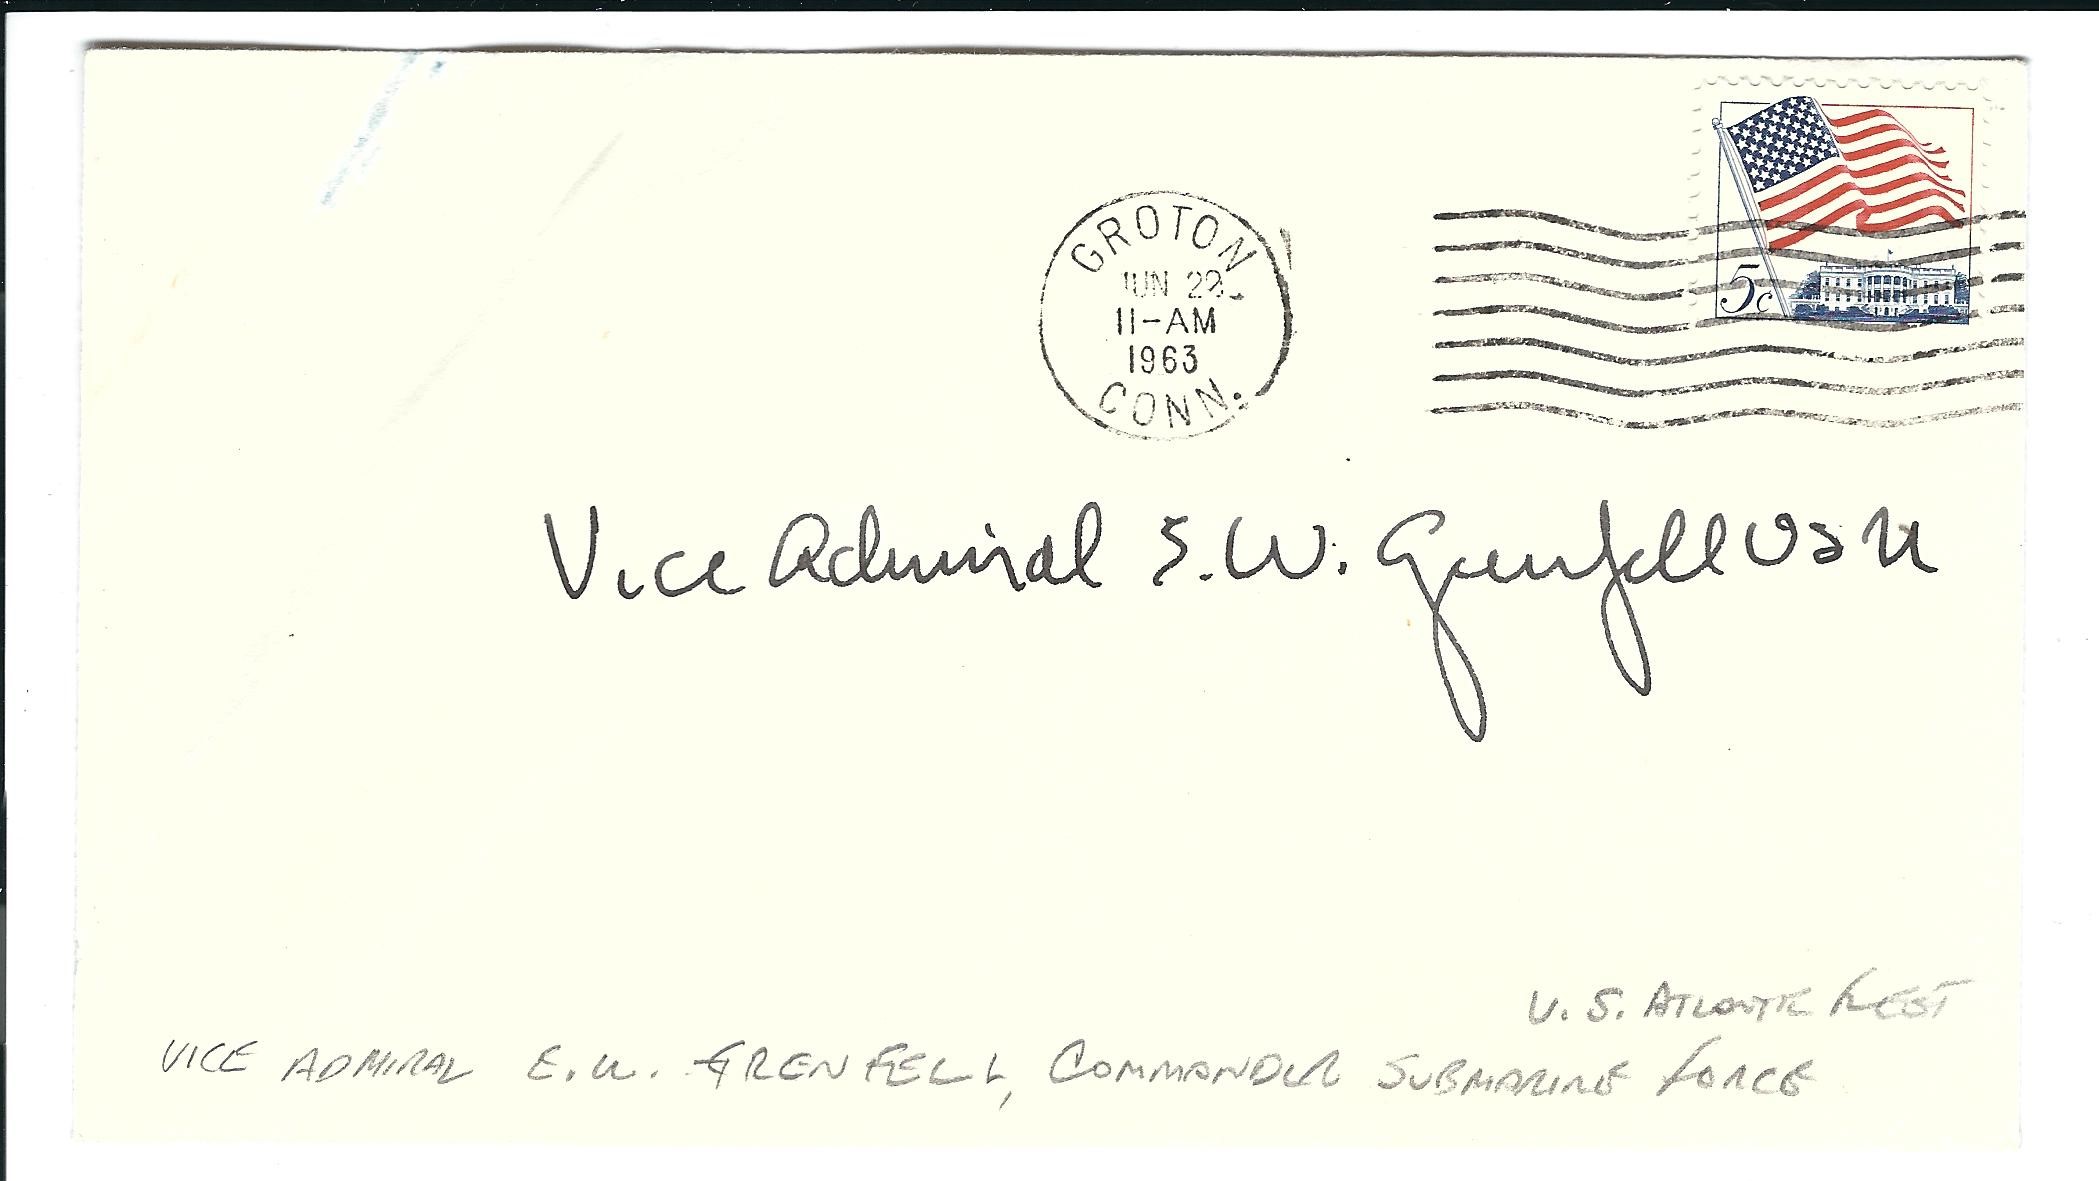 GROTON
JUN 22
11-AM
1963
CONN.
5c
Vice Admiral E.W. Grenfell USN
U.S. ATLANTIC FLEET
VICE ADMIRAL E.W. GRENFELL, COMMANDER SUBMARINE FORCE